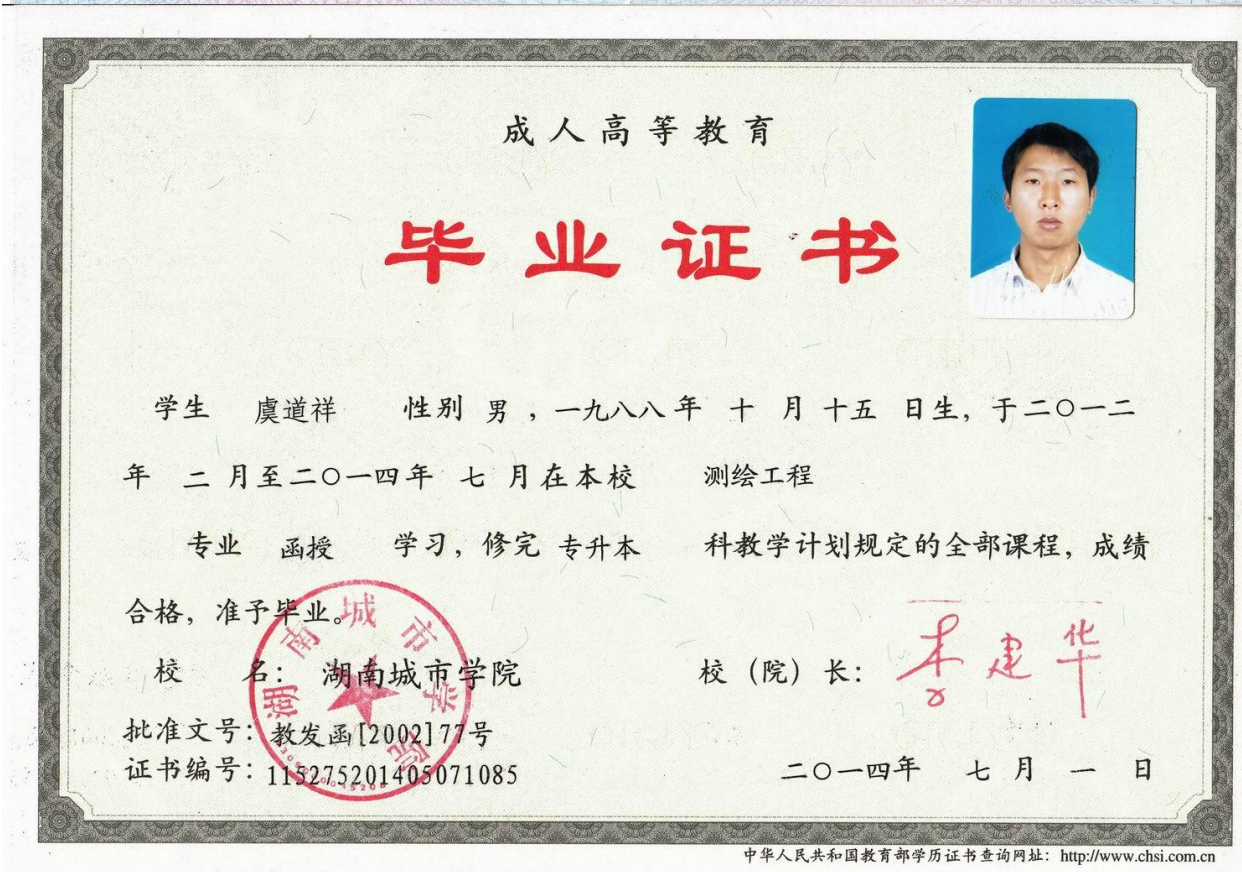 成人高等教育
毕业证书
学生 虞道祥 性别 男 ，一九八八年 十 月 十五 日生，于二〇一二
年 二 月至二〇一四年 七 月在本校 测绘工程
专业 函授 学习，修完 专升本 科教学计划规定的全部课程，成绩
合格，准予毕业。
湖南城市学院
校 名： 湖南城市学院 校（院）长： 李建华
批准文号：教发函[2002]77号
证书编号：115275201405071085 二〇一四年 七 月 一 日
中华人民共和国教育部学历证书查询网址：http://www.chsi.com.cn